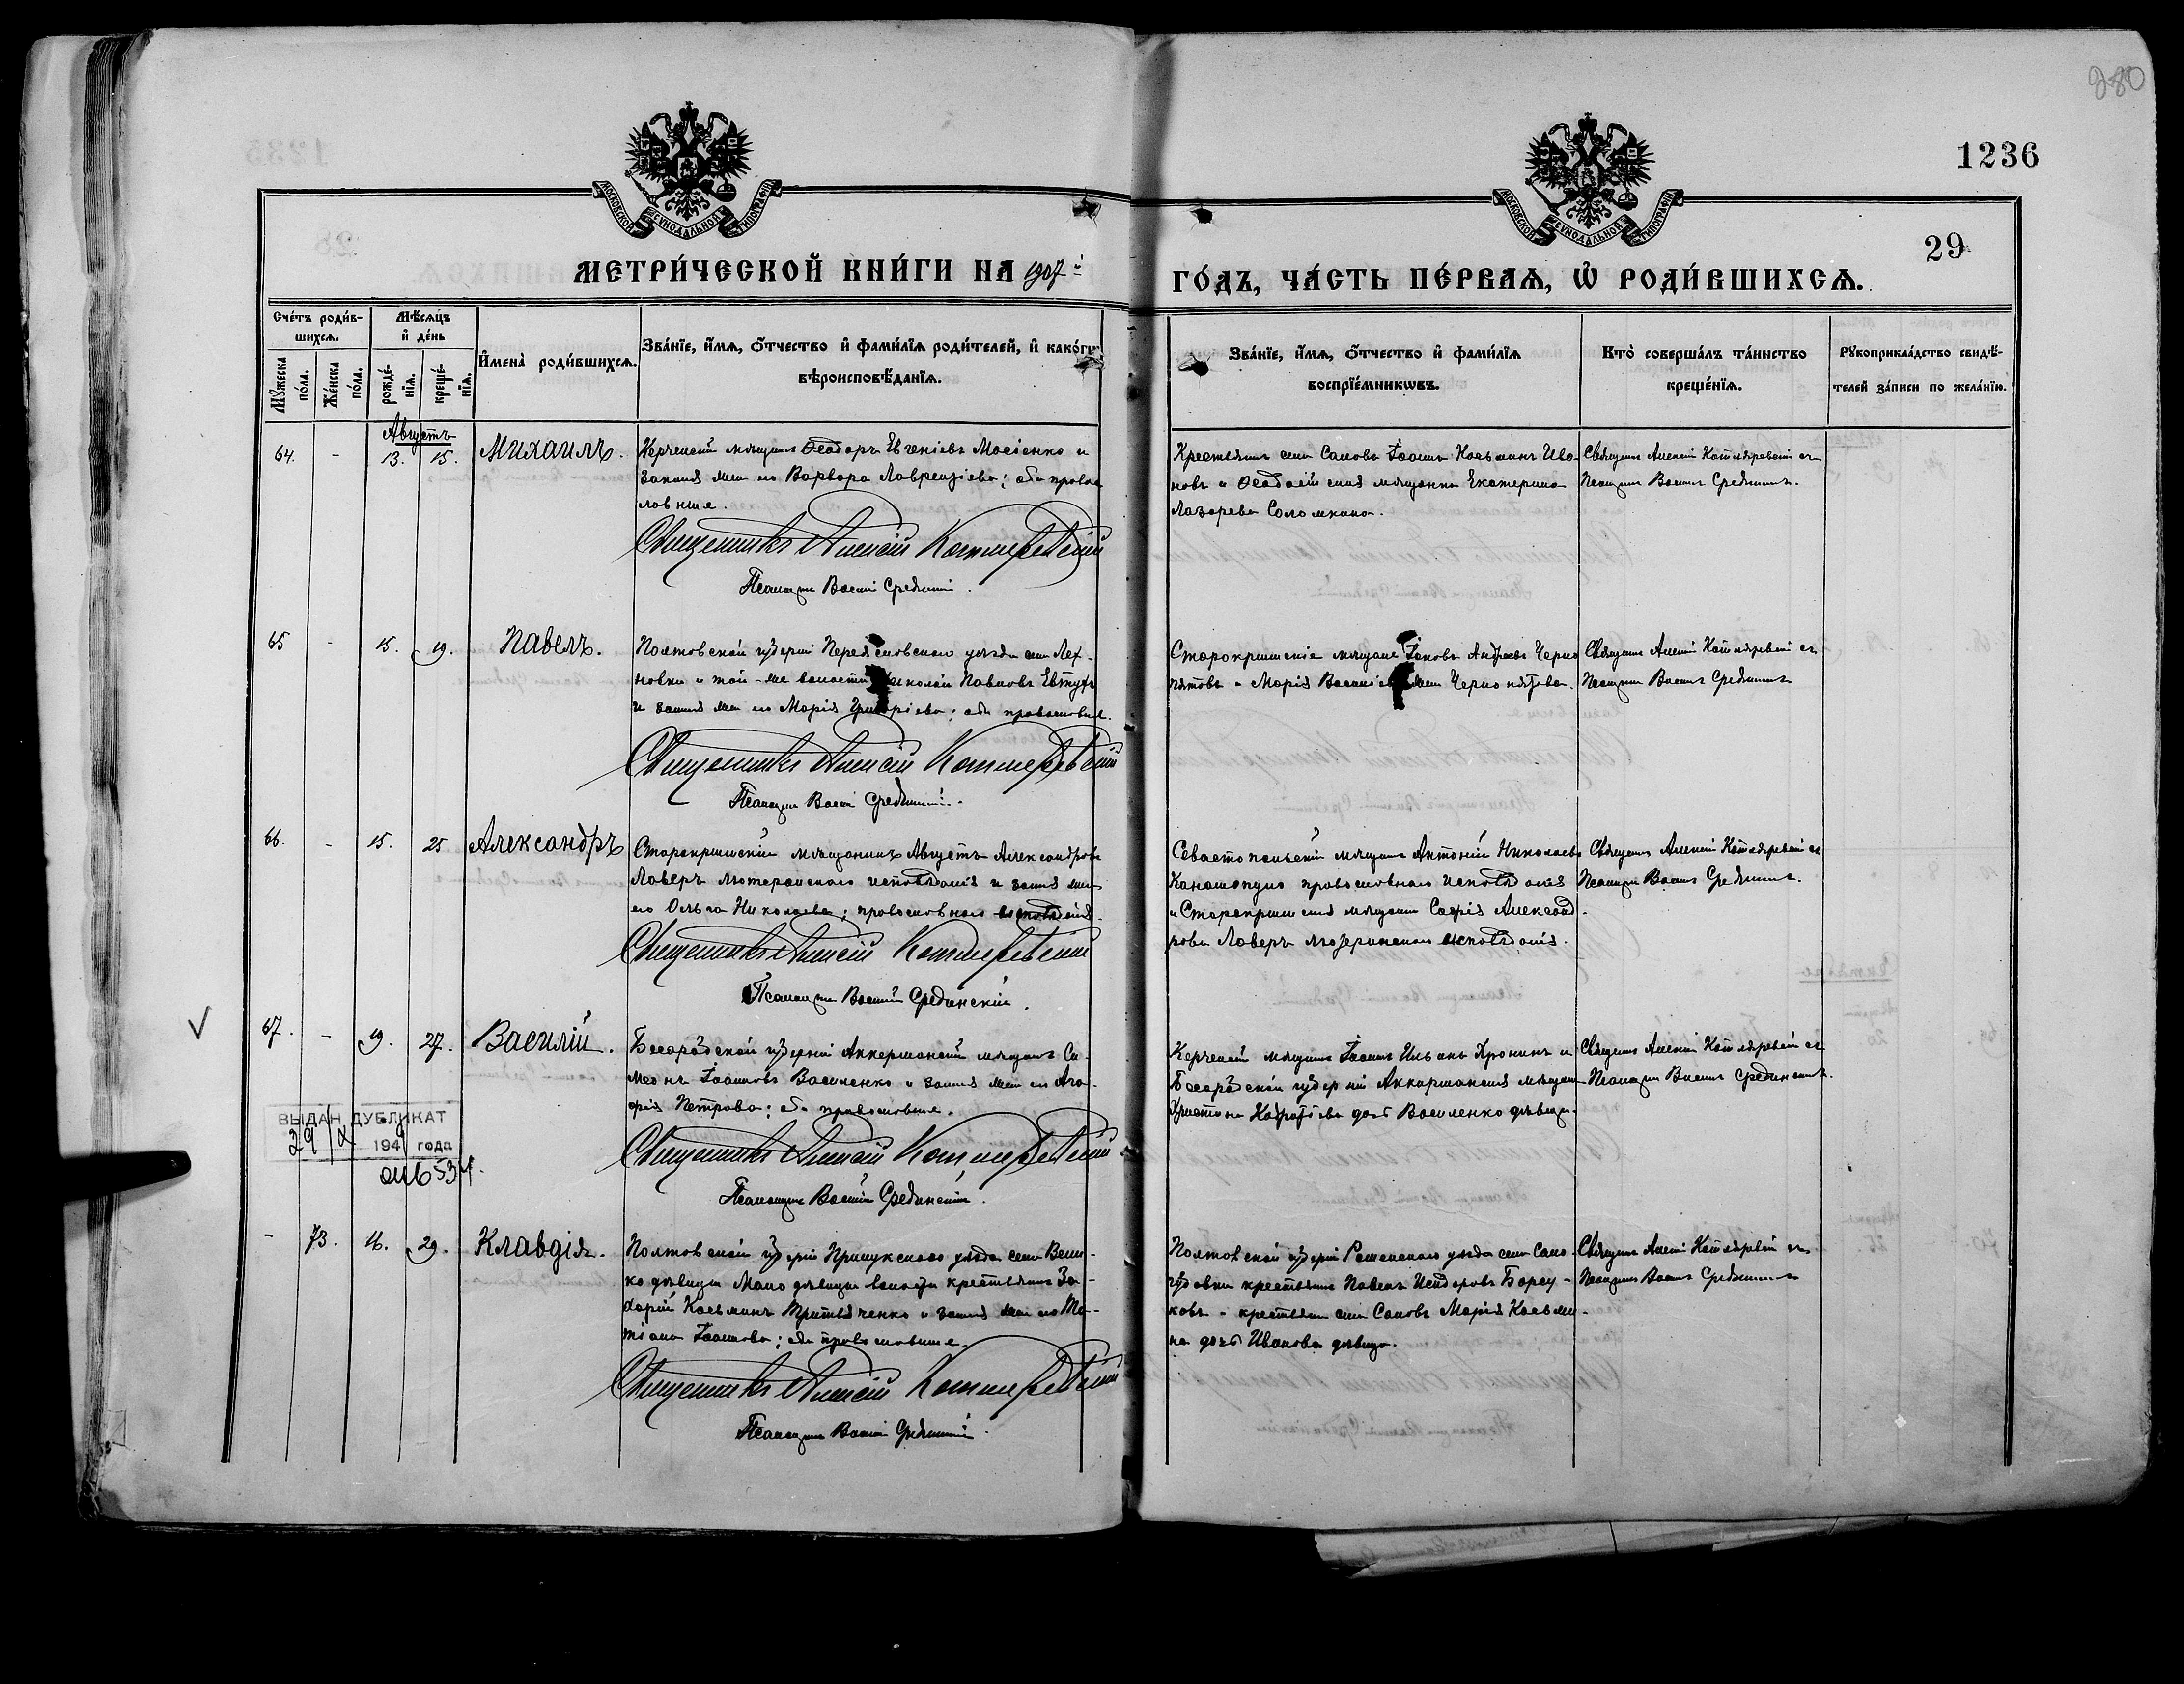 280
1236
29
МОСКОВСКОЙ СѴНОДАЛЬНОЙ ТИПОГРАФІИ
МОСКОВСКОЙ СѴНОДАЛЬНОЙ ТИПОГРАФІИ
МЕТРИ́ЧЕСКОЙ КНИ́ГИ НА 1907 й
ГО́ДЪ, ЧА́СТЬ ПЕ́РВАѦ, Ѡ҆ РОДИ́ВШИХСѦ.
Сче́тъ роди́в-
шихсѧ.
Мѣ́сѧцъ
и҆ де́нь
Мꙋ́жеска по́ла.
Же́нска по́ла.
рожде́-нїѧ.
креще́-нїѧ.
И҆мена̀ роди́вшихсѧ.
Зва́нїе, и҆́мѧ, ѻ҆́тчество и҆ фами́лїѧ роди́телей, и҆ како́гѡ
вѣроисповѣ́данїѧ.
Зва́нїе, и҆́мѧ, ѻ҆́тчество и҆ фами́лїѧ
воспрїе́мникѡвъ.
Кто̀ соверша́лъ та́инство
креще́нїѧ.
Рꙋкоприкла́дство свидѣ́-
телей за́писи по жела́нїю.
Августъ
64. - 13. 15. Михаилъ.
Керченскій мѣщанинъ Ѳеодоръ Евгеніевъ Мосіенко и
законная жена его Варвара Лаврентіева; оба правос
лавные.
Священникъ Алексій Котляревскій
Псаломщикъ Василій Срединскій.
Крестьянинъ села Саловъ Іоаннъ Косьминъ Ива-
новъ и Ѳеодосійская мѣщанка Екатерина
Лазарева Соломкина.
Священникъ Алексій Котляревскій съ
Псаломщ. Василіемъ Срединскимъ.
65 - 15. 19. Павелъ.
Полтавской губерніи Переяславскаго уѣзда села Лех-
новки и той-же волости Николай Павловъ Евтухъ
и законная жена его Марія Григоріева; оба православные.
Священникъ Алексій Котляревскій
Псаломщикъ Василій Срединскій.
Старокрымскіе мѣщане Іаковъ Андреевъ Черно
пятовъ и Марія Василіева Чернопятова.
Священникъ Алексій Котляревскій съ
Псаломщ. Василіемъ Срединскимъ
66. - 15. 25 Александръ
Старокрымскій мѣщанинъ Августъ Александровъ
Лаверъ лютеранскаго исповѣданія и законная жена
его Ольга Николаева; православнаго исповѣданія.
Священникъ Алексій Котляревскій
Псаломщикъ Василій Срединскій.
Севастопольскій мѣщанинъ Антоній Николаевъ
православнаго исповѣданія
и Старокрымская мѣщанка Софія Александ-
рова Лаверъ лютеранскаго исповѣданія.
Священникъ Алексій Котляревскій съ
Псаломщ. Василіемъ Срединскимъ.
67. - 19. 27. Василій.
Бессарабской губерніи Аккерманскій мѣщанинъ Си-
меонъ Іоанновъ Василенко и законная жена его Ага-
фія Петрова; оба православные.
Священникъ Алексій Котляревскій
Псаломщикъ Василій Срединскій.
Керченскій мѣщанинъ Іоаннъ Хронинъ и
Бессарабской губерніи Аккерманская мѣщанка
Христина дочь Василенко дѣвица.
Священникъ Алексій Котляревскій съ
Псаломщ. Василіемъ Срединскимъ.
ВЫДАН ДУБЛИКАТ
29/X 1949 года
- 73. 16. 29. Клавдія.
Полтавской губерніи Прилукскаго уѣзда села Вели-
кодѣвицы Малодѣвицкой волости крестьянинъ За-
харій Косьминъ Притыченко и законная жена его Та-
тіана Іоаннова; оба православные.
Священникъ Алексій Котляревскій
Псаломщикъ Василій Срединскій.
Полтавской губерніи Роменскаго уѣзда села
крестьянинъ Павелъ Исидоровъ Борсу-
ковъ и крестьянка села Саловъ Марія Косьми-
на дочь Иванова дѣвица.
Священникъ Алексій Котляревскій съ
Псаломщ. Василіемъ Срединскимъ